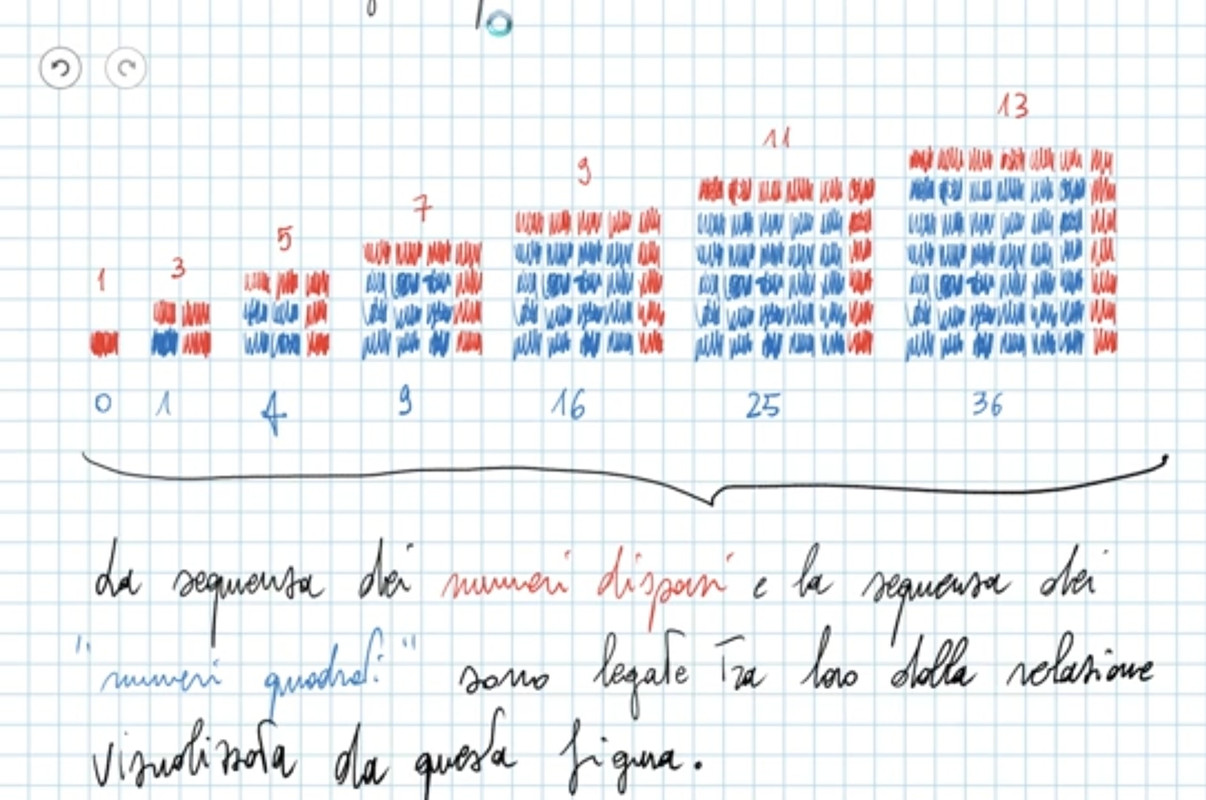 13
11
9
7
5
3
1
0 1 4 9 16 25 36
La sequenza dei numeri dispari e la sequenza dei
"numeri quadrati" sono legate tra loro dalla relazione
visualizzata da questa figura.